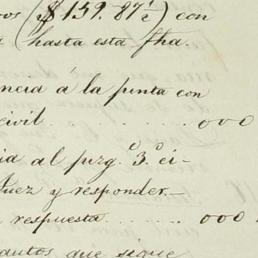 os ($139.87½) con
(hasta esta fha.
ncia á la punta con
civil. . . . . . 000
ia al juzg.º 3.º ci-
Juez y responder—
respuesta . . . . . . 000
autos que sigue